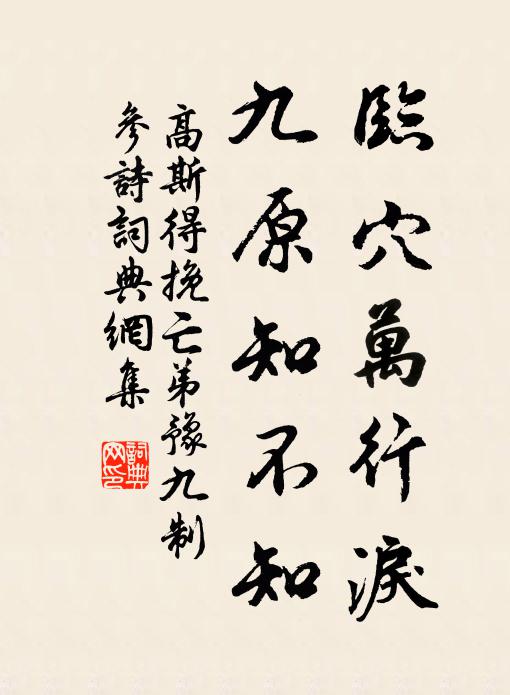 臨穴萬行淚
九原知不知
高斯得挽亡弟豫九制
參詩詞典網集
詞典
网印